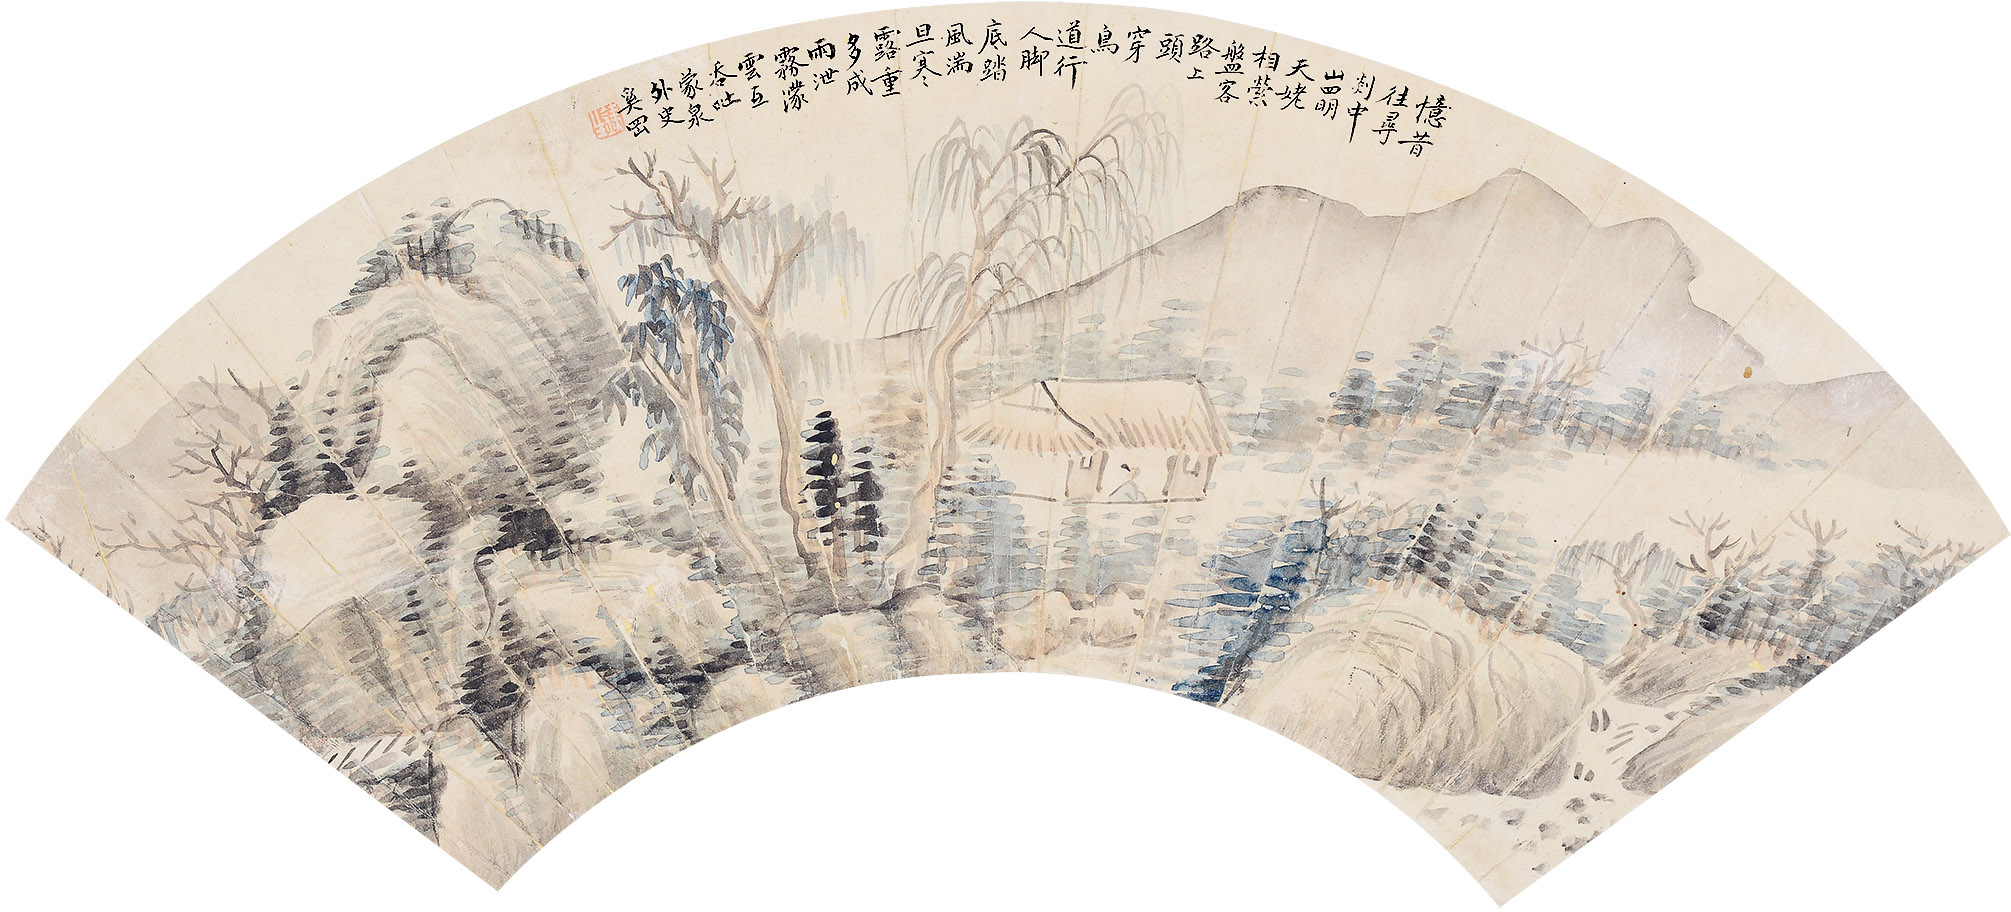 憶昔
往尋
剡中
山四明
天姥
相縈
盤客
路上
頭
穿
鳥
道行
人脚
底踏
風湍
旦寒
露重
多成
雨泄
霧濛
雲互
吞吐
蒙泉
外史
奚岡